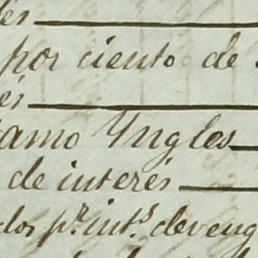 por ciento de
amo Yngles
de interés
dos p.r int.s deveng